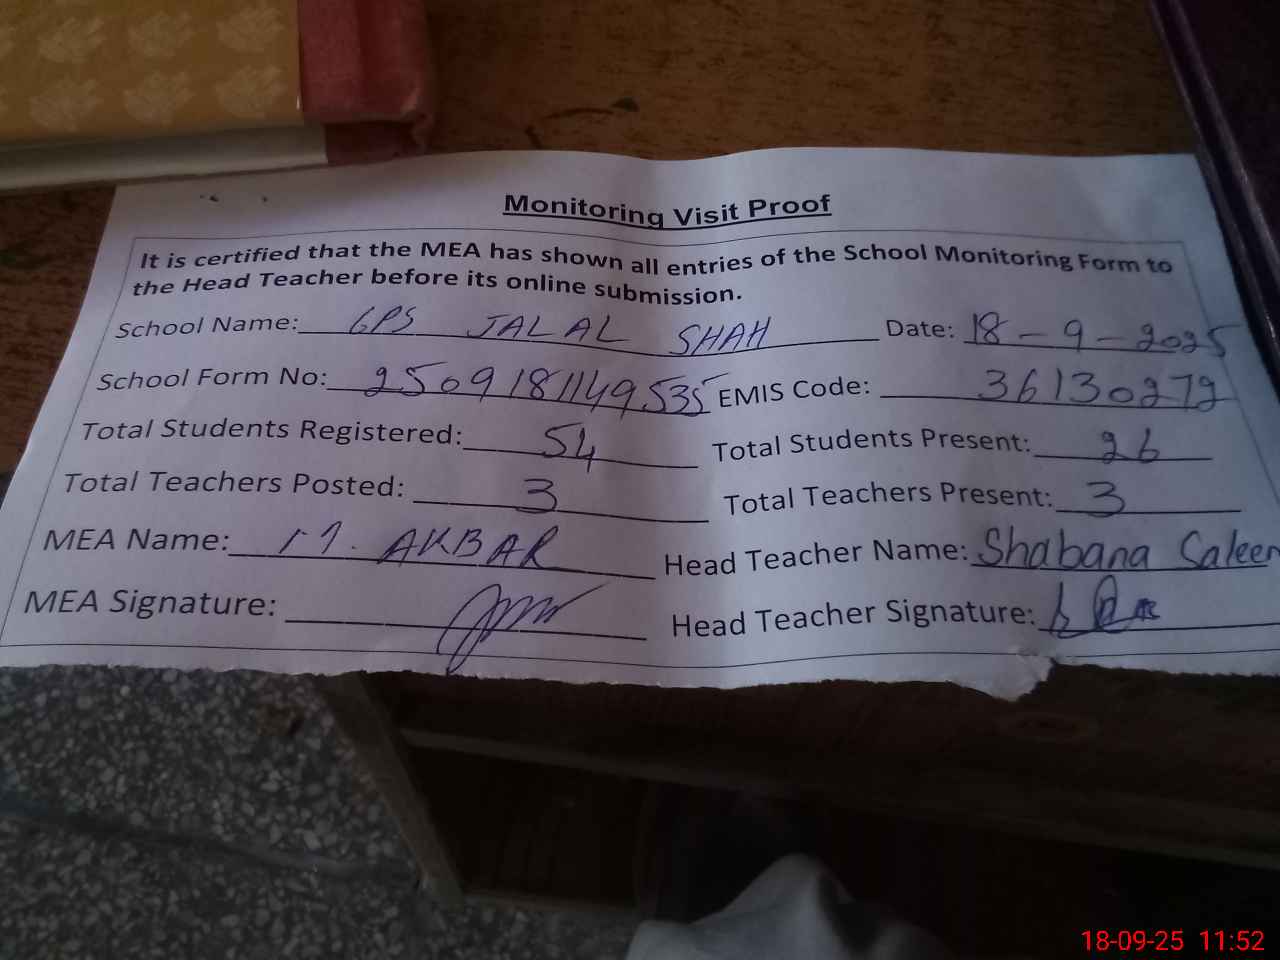 Monitoring Visit Proof
It is certified that the MEA has shown all entries of the School Monitoring Form to
the Head Teacher before its online submission.
School Name: GPS JALAL SHAH Date: 18-9-2025
School Form No: 2509181149535 EMIS Code: 36130272
Total Students Registered: 54 Total Students Present: 26
Total Teachers Posted: 3 Total Teachers Present: 3
MEA Name: M. AKBAR Head Teacher Name: Shabana Saleem
MEA Signature: Head Teacher Signature:
18-09-25 11:52